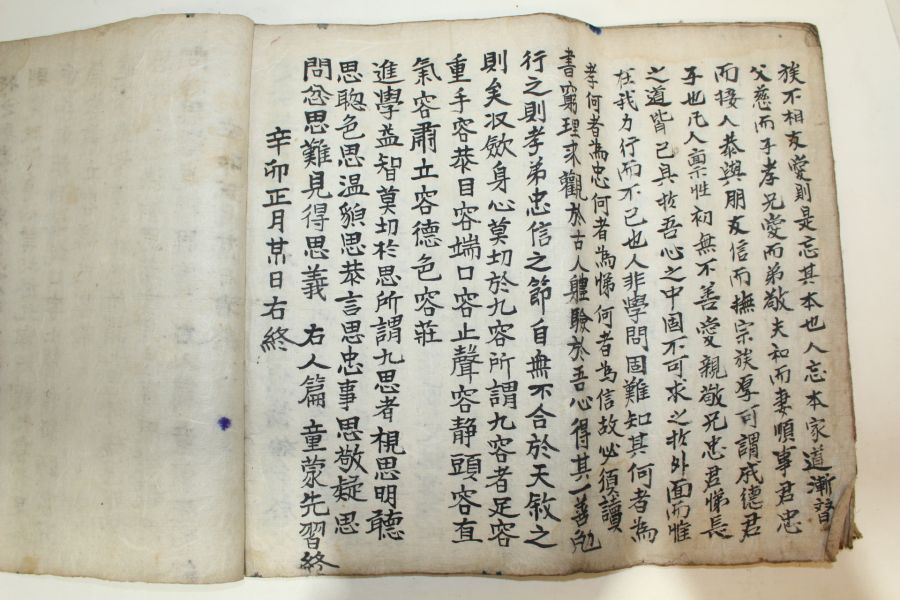 族不相友愛則是忘其本也人忘本家道漸替
父慈而子孝兄愛而弟敬夫和而妻順事君忠
而接人恭與朋友信而撫宗族厚可謂成德君
子也凡人禀性初無不善愛親敬兄忠君悌長
之道皆已具於吾心之中固不可求之於外面而惟
在我力行而不已也人非學問固難知其何者為
孝何者為忠何者為悌何者為信故必須讀
書窮理求觀於古人體驗於吾心得其一善勉
行之則孝弟忠信之節自無不合於天敘之
則矣収斂身心莫切於九容所謂九容者足容
重手容恭目容端口容止聲容静頭容直
氣容肅立容德色容莊
進學益智莫切於思所謂九思者視思明聽
思聰色思温貌思恭言思忠事思敬疑思
問忿思難見得思義 右人篇 童蒙先習終
辛卯正月某日右終